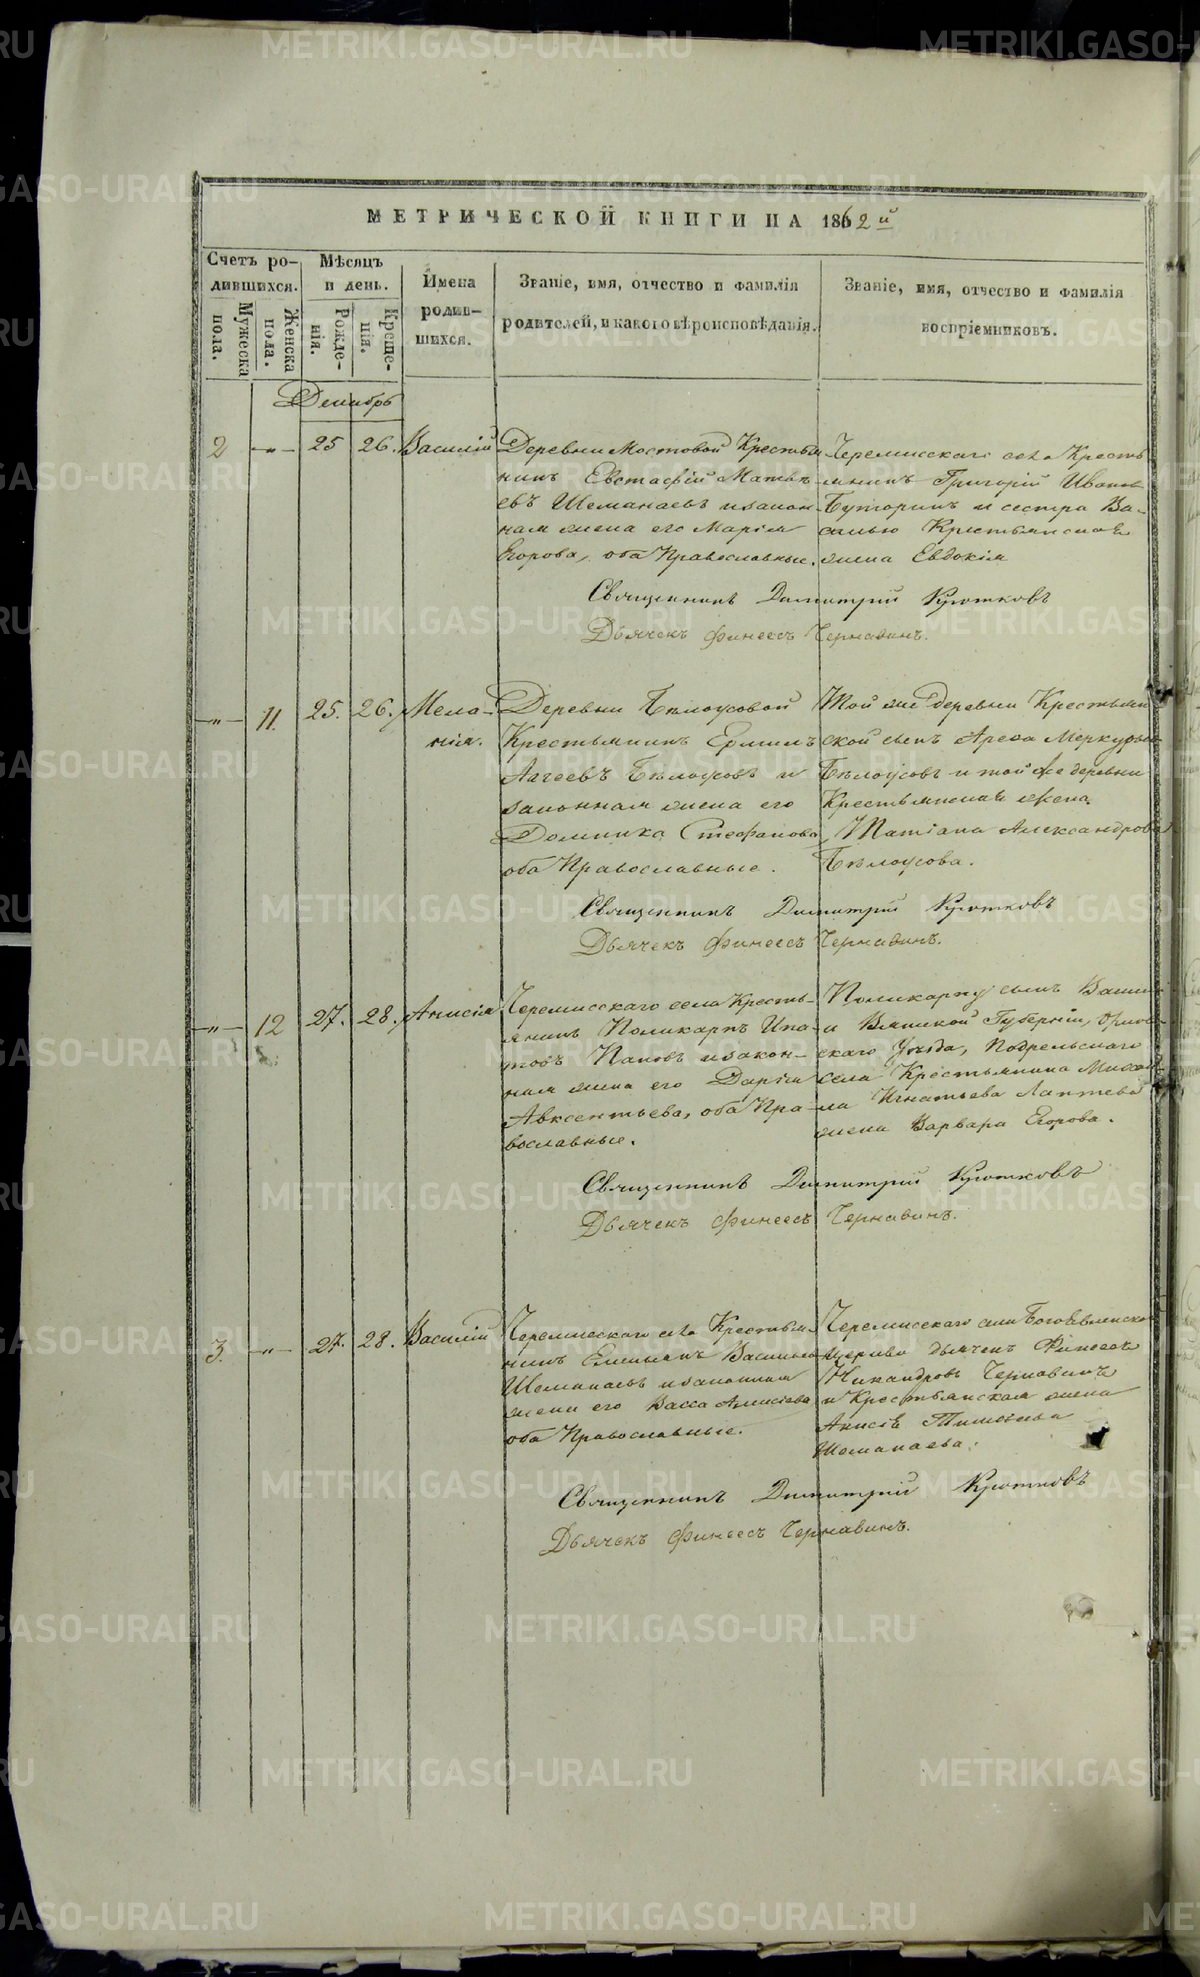 МЕТРИЧЕСКОЙ КНИГИ НА 1862 й
Счетъ ро-
дившихся.
Мѣсяцъ
и день.
Имена
родив-
шихся.
Званіе, имя, отчество и фамилія
родителей, и какого вѣроисповѣданія.
Званіе, имя, отчество и фамилія
воспріемниковъ.
Мужеска
пола.
Женска
пола.
Рожде-
нія.
Креще-
нія.
Декабрь
2 -"- 25 26. Василій
Деревни Мостовой Крестья
нинъ Евстафій Матвѣ-
евъ Шеманаевъ и закон-
ная жена его Марія
Егорова, оба Православные.
Черемисскаго села Кресть
янинъ Григорій Иванов
Буторинъ и сестра Ва-
силью Крестьянская
жена Евдокія
Священникъ Димитрій Кротковъ
Дьячекъ Финеесъ Чернавинъ.
-"- 11. 25. 26. Мела-
нія.
Деревни Бѣлоусовой
Крестьянинъ Ермилъ
Аггеевъ Бѣлоусовъ и
законная жена его
Домника Стефанова
оба Православные.
Той же деревни Крестьян
ской сынъ Ареѳа Меркурьев
Бѣлоусовъ и той же деревни
Крестьянская жена
Татіана Александрова
Бѣлоусова.
Священникъ Димитрій Кротковъ
Дьячекъ Финеесъ Чернавинъ.
-"- 12 27. 28. Анисія
Черемисскаго села Кресть-
янинъ Поликарпъ Ипа-
товъ Паповъ и закон-
ная жена его Дарія
Авксентьева, оба Пра-
вославные.
Поликарпу сынъ
и Вятской Губерніи, Орлов-
скаго Уѣзда, Подрельскаго
села Крестьянина Михаи-
ла Игнатьева Лаптева
жена Варвара Егорова.
Священникъ Димитрій Кротковъ
Дьячекъ Финеесъ Чернавинъ.
3. -"- 27. 28. Василій
Черемисскаго села Крестья-
нинъ Емельянъ Васильев
Шеманаевъ и законная
жена его Васса Алексѣева
оба Православные.
Черемисскаго села Богоявленско
церкви дьячекъ Финеесъ
Никандровъ Чернавинъ
и Крестьянская жена
Анисія Тимоѳеева
Шеманаева.
Священникъ Димитрій Кротковъ
Дьячекъ Финеесъ Чернавинъ.
METRIKI.GASO-URAL.RU